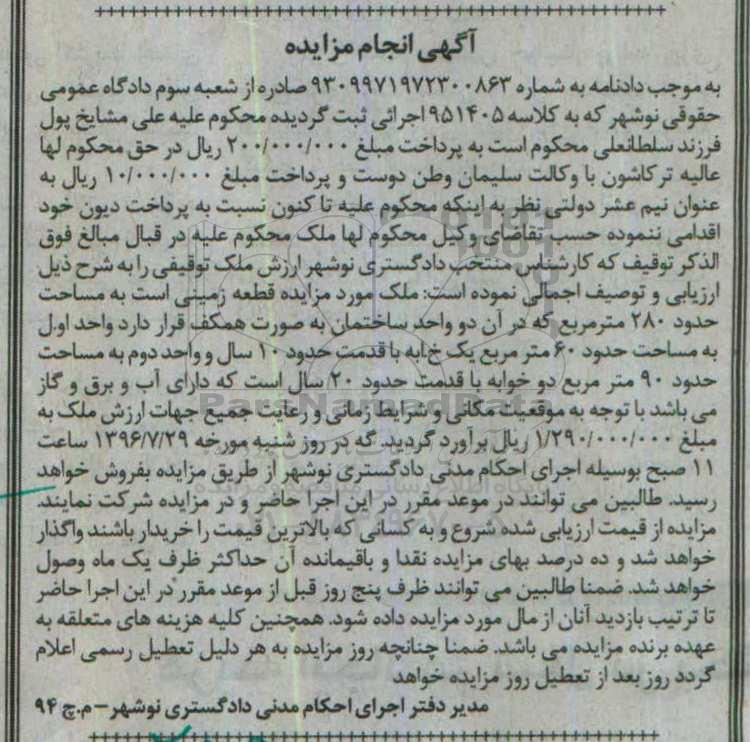 آگهی انجام مزایده
به موجب دادنامه به شماره ۹۳۰۹۹۷۱۹۷۲۳۰۰۸۶۳ صادره از شعبه سوم دادگاه عمومی
حقوقی نوشهر که به کلاسه ۹۵۱۴۰۵ اجرائی ثبت گردیده محکوم علیه علی مشایخ پول
فرزند سلطانعلی محکوم است به پرداخت مبلغ ۲۰۰/۰۰۰/۰۰۰ ریال در حق محکوم لها
عالیه ترکاشون با وکالت سلیمان وطن دوست و پرداخت مبلغ ۱۰/۰۰۰/۰۰۰ ریال به
عنوان نیم عشر دولتی نظر به اینکه محکوم علیه تا کنون نسبت به پرداخت دیون خود
اقدامی ننموده حسب تقاضای وکیل محکوم لها ملک محکوم علیه در قبال مبالغ فوق
الذکر توقیف که کارشناس منتخب دادگستری نوشهر ارزش ملک توقیفی را به شرح ذیل
ارزیابی و توصیف اجمالی نموده است: ملک مورد مزایده قطعه زمینی است به مساحت
حدود ۲۸۰ مترمربع که در آن دو واحد ساختمان به صورت همکف قرار دارد واحد اول
به مساحت حدود ۶۰ متر مربع یک خابه با قدمت حدود ۱۰ سال و واحد دوم به مساحت
حدود ۹۰ متر مربع دو خوابه با قدمت حدود ۲۰ سال است که دارای آب و برق و گاز
می باشد با توجه به موقعیت مکانی و شرایط زمانی و رعایت جمیع جهات ارزش ملک به
مبلغ ۱/۲۹۰/۰۰۰/۰۰۰ ریال برآورد گردید. که در روز شنبه مورخه ۱۳۹۶/۷/۲۹ ساعت
۱۱ صبح بوسیله اجرای احکام مدنی دادگستری نوشهر از طریق مزایده بفروش خواهد
رسید. طالبین می توانند در موعد مقرر در این اجرا حاضر و در مزایده شرکت نمایند.
مزایده از قیمت ارزیابی شده شروع و به کسانی که بالاترین قیمت را خریدار باشند واگذار
خواهد شد و ده درصد بهای مزایده نقدا و باقیمانده آن حداکثر ظرف یک ماه وصول
خواهد شد. ضمنا طالبین می توانند ظرف پنج روز قبل از موعد مقرر در این اجرا حاضر
تا ترتیب بازدید آنان از مال مورد مزایده داده شود. همچنین کلیه هزینه های متعلقه به
عهده برنده مزایده می باشد. ضمنا چنانچه روز مزایده به هر دلیل تعطیل رسمی اعلام
گردد روز بعد از تعطیل روز مزایده خواهد
مدیر دفتر اجرای احکام مدنی دادگستری نوشهر – م.چ ۹۴
ParsNamadData